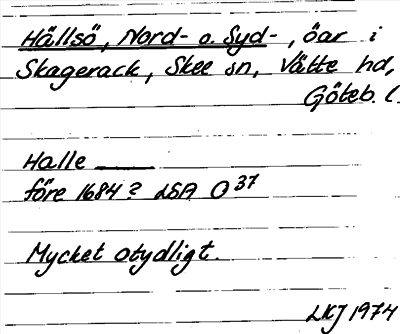 Hällsö, Nord- o. Syd-, öar i
Skagerack, Skee sn, Vätte hd,
Göteb. l.
Halle ____
före 1684? LSA O37
Mycket otydligt.
LKJ 1974